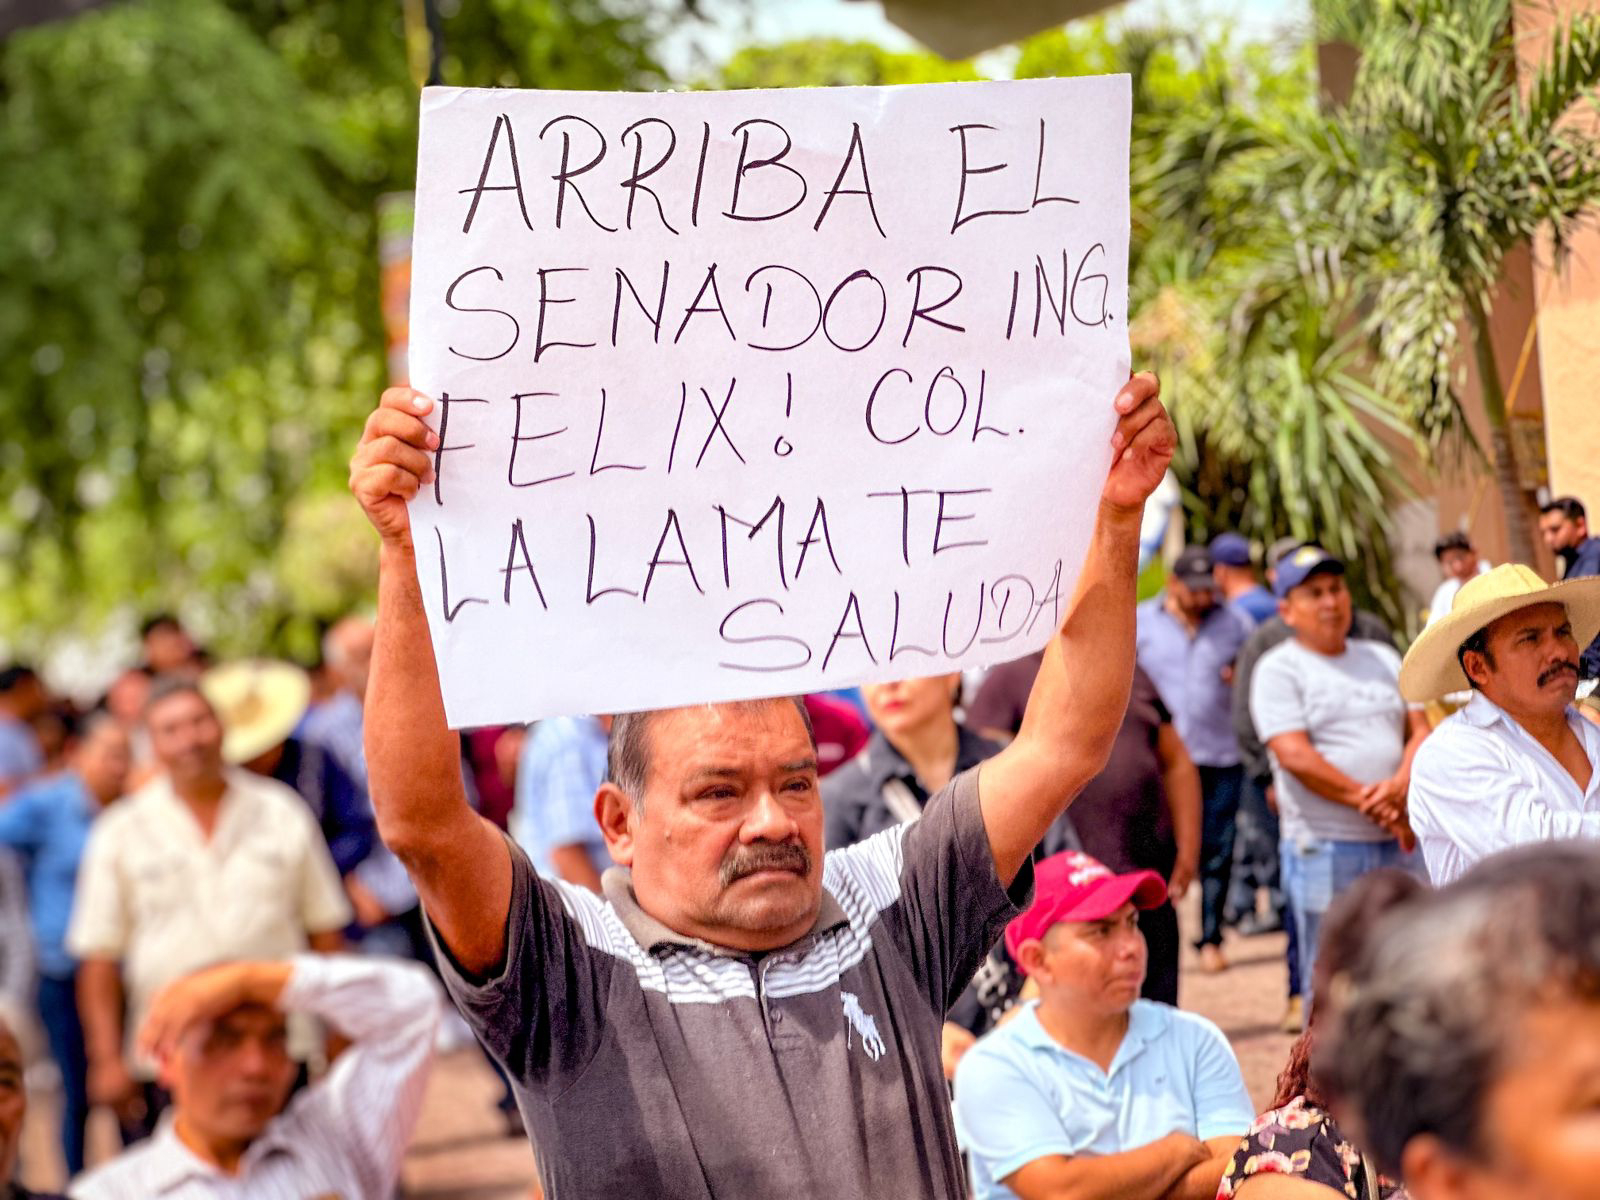 ARRIBA EL
SENADOR ING.
FELIX! COL.
LA LAMA TE
SALUDA